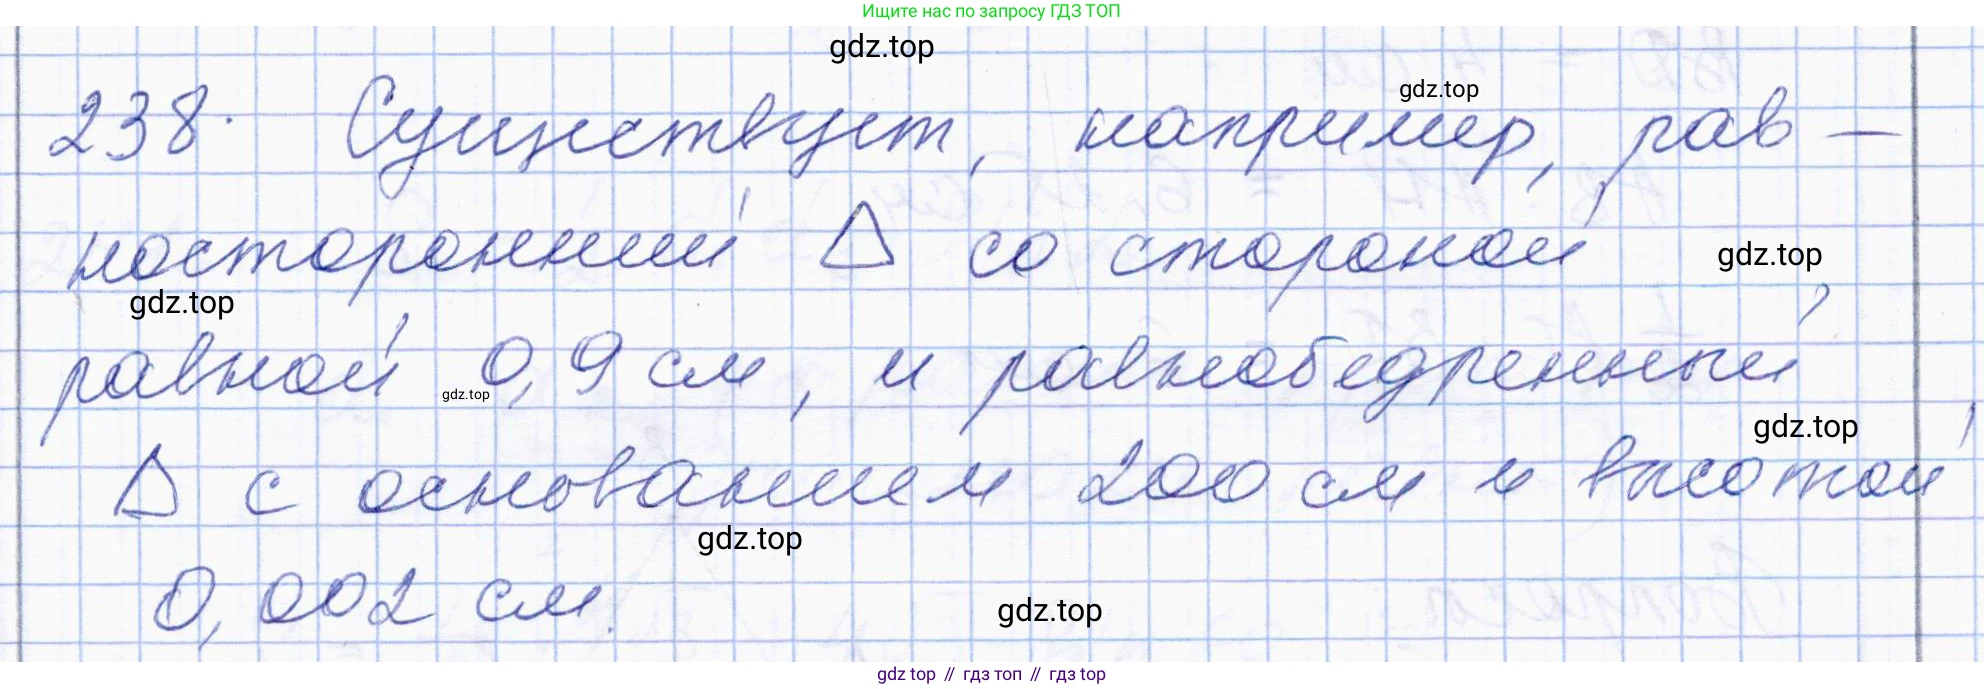 Ищите нас по запросу ГДЗ ТОП
gdz.top
gdz.top
238. Существует, например, рав-
носторонний Δ со стороной
gdz.top
gdz.top
равной 0,9 см, и равнобедренный
gdz.top
gdz.top
Δ с основанием 200 см и высотой
gdz.top
0,002 см.
gdz.top
gdz top // гдз топ // гдз top